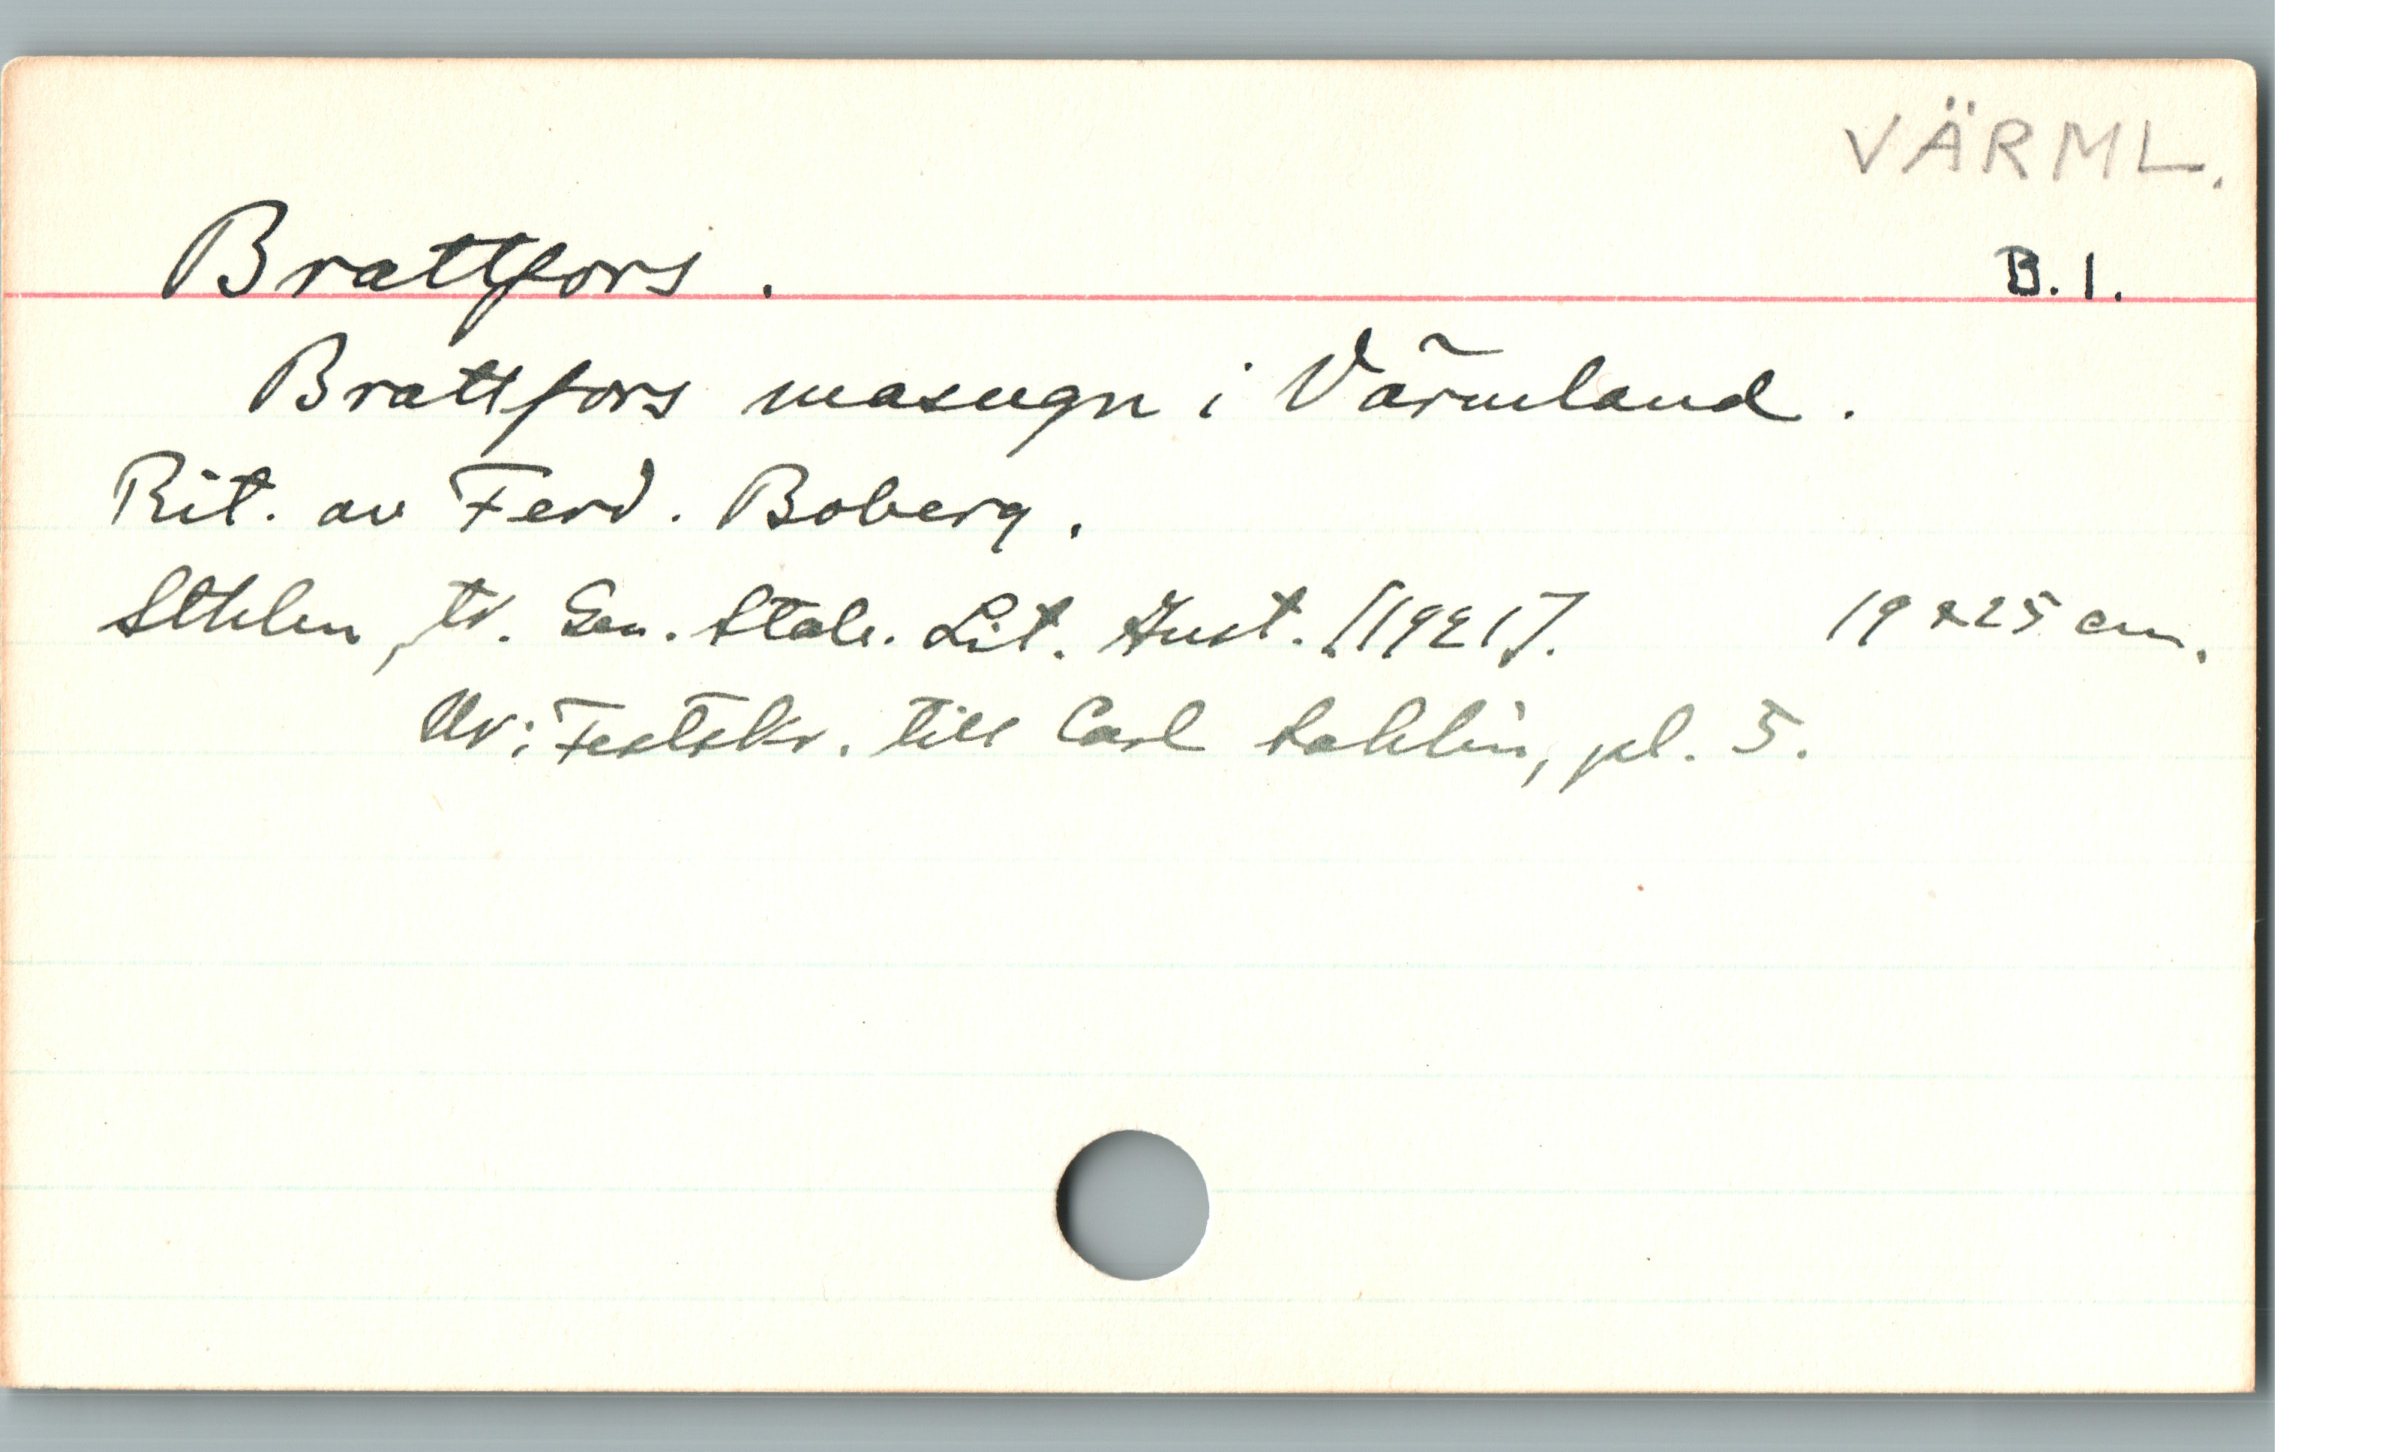 VÄRML.
Brattfors. B. 1.
Brattfors masugn i Värmland.
Rit. av Ferd. Boberg.
Sthlm, tr. Gen. Stab. Lit. Anst. [1921]. 19 x 25 cm.
Ur: Festskr. till Carl Sahlin, pl. 5.